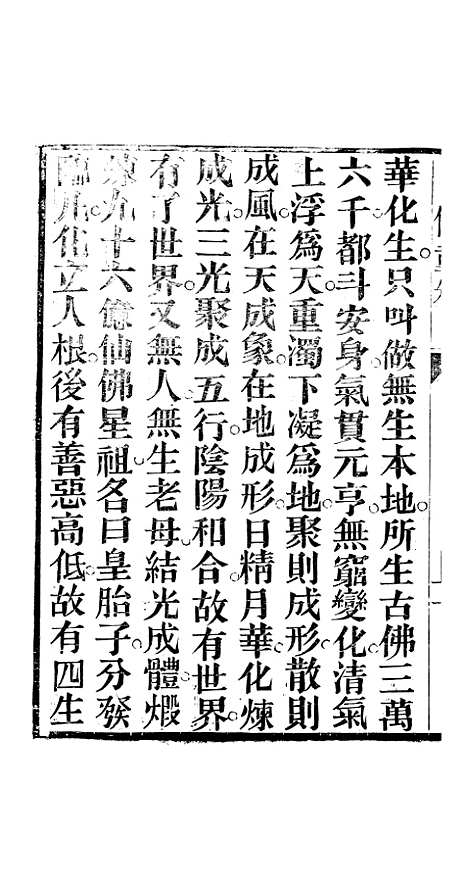 華化生。只叫做無生本地。所生古佛三萬
六千都斗安身。氣貫元亨。無窮變化。清氣
上浮爲天。重濁下凝爲地。聚則成形。散則
成風。在天成象。在地成形。日精月華。化煉
成光。三光聚成五行。陰陽和合。故有世界。
有了世界。又無人。無生老母。結光成體。煅
煉九十六億仙佛星祖。名曰皇胎子。分發
臨凡。化立人根。後有善惡高低。故有四生